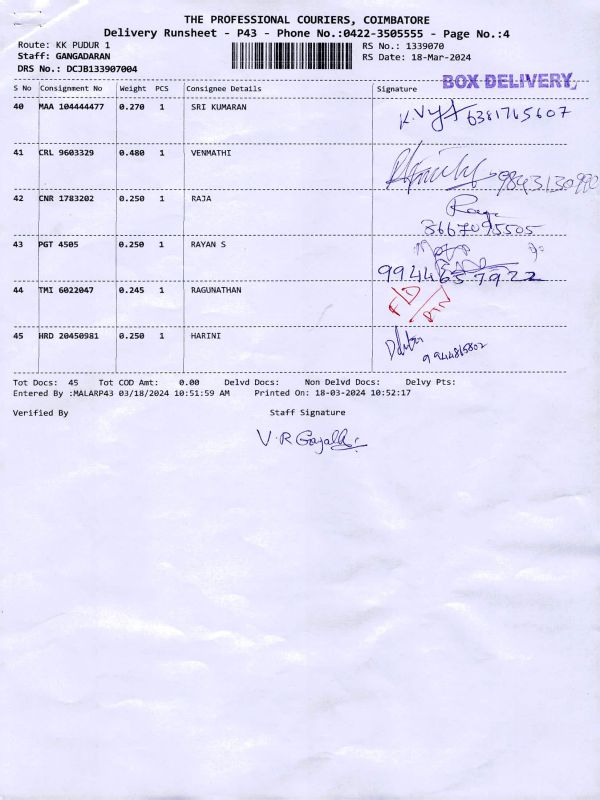 THE PROFESSIONAL COURIERS, COIMBATORE
Delivery Runsheet - P43 - Phone No.:0422-3505555 - Page No.:4
Route: KK PUDUR 1 RS No.: 1339070
Staff: GANGADARAN RS Date: 18-Mar-2024
DRS No.: DCJB133907004
BOX DELIVERY
S No Consignment No Weight PCS Consignee Details Signature
40 MAA 104444477 0.270 1 SRI KUMARAN 6381765607
41 CRL 9603329 0.480 1 VENMATHI
42 CNR 1783202 0.250 1 RAJA
43 PGT 4505 0.250 1 RAYAN S
44 TMI 6022047 0.245 1 RAGUNATHAN
45 HRD 20450981 0.250 1 HARINI
Tot Docs: 45 Tot COD Amt: 0.00 Delvd Docs: Non Delvd Docs: Delvy Pts:
Entered By :MALARP43 03/18/2024 10:51:59 AM Printed On: 18-03-2024 10:52:17
Verified By Staff Signature